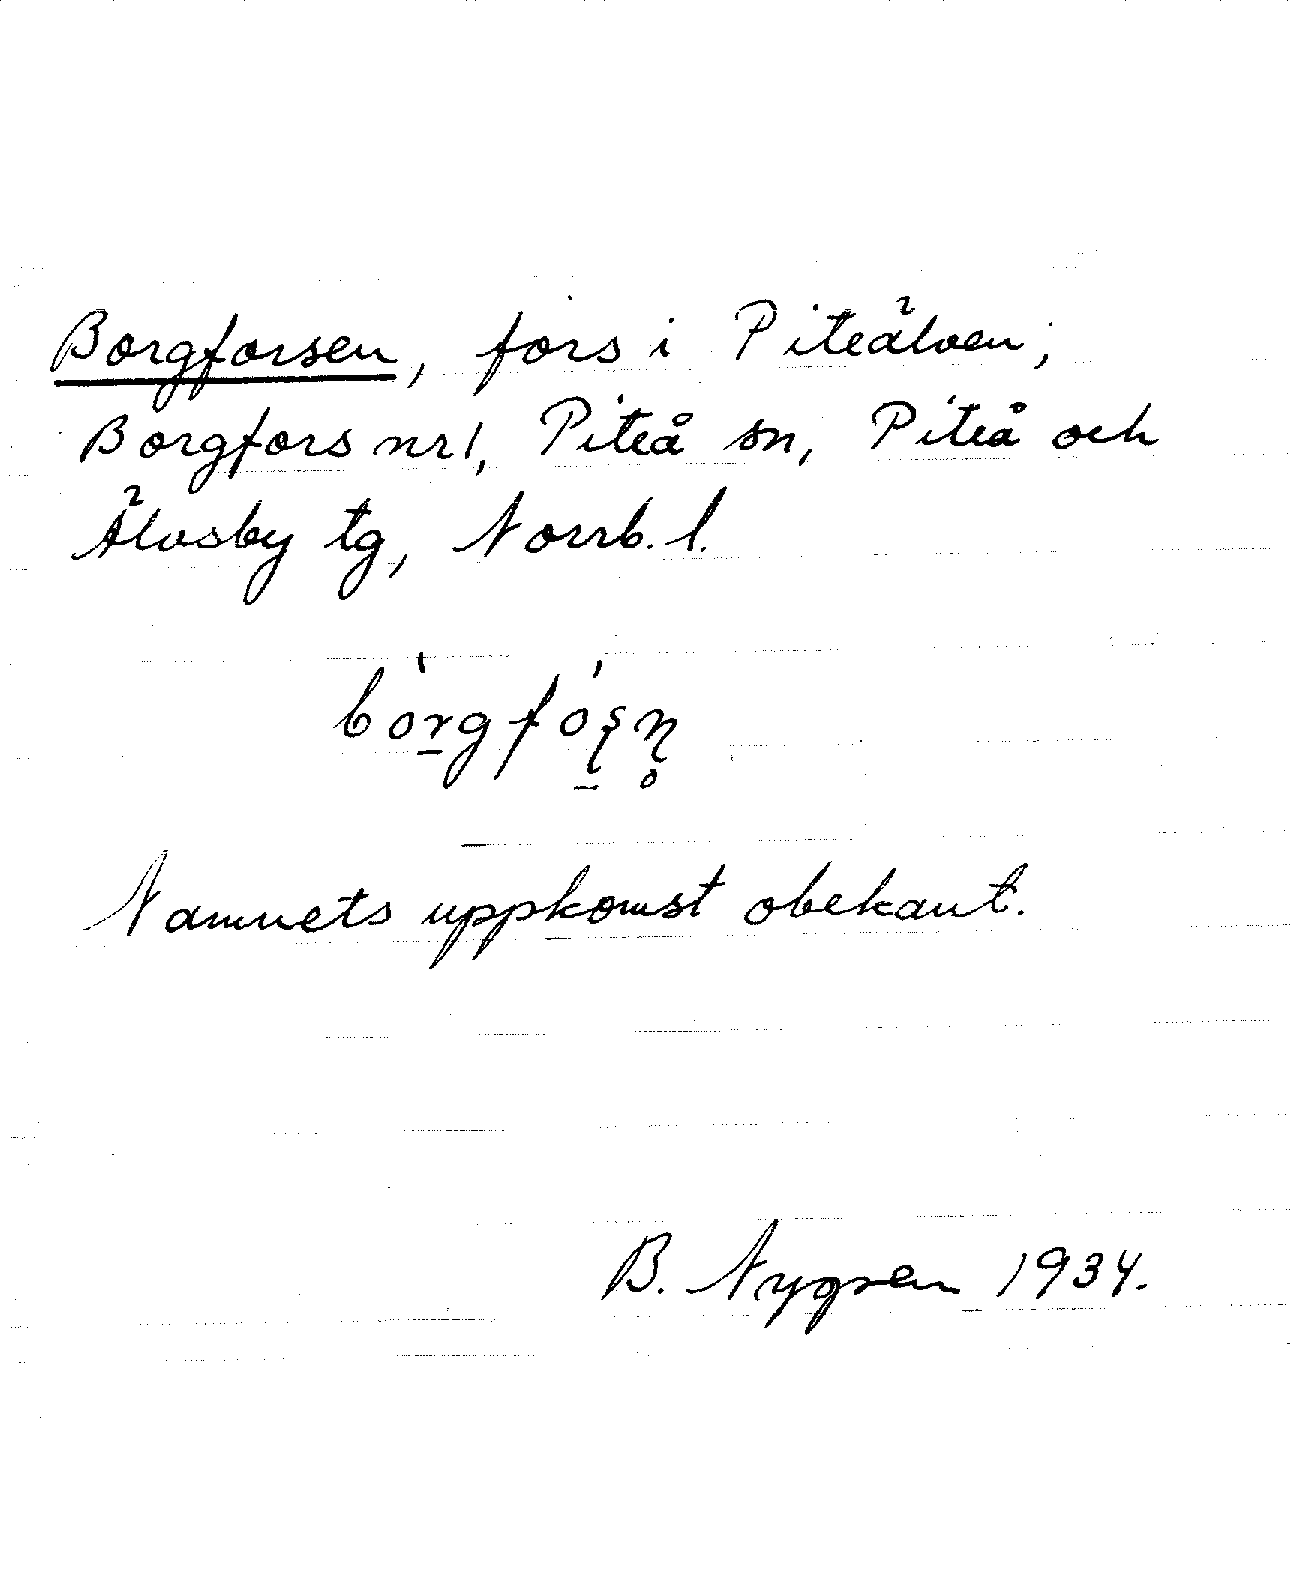 Borgforsen, fors i Piteälven,
Borgfors nr 1, Piteå sn, Piteå och
Älvsby tg, Norrb. l.
bòrgfóʂɳ̥
Namnets uppkomst obekant.
B. Nygren 1934.